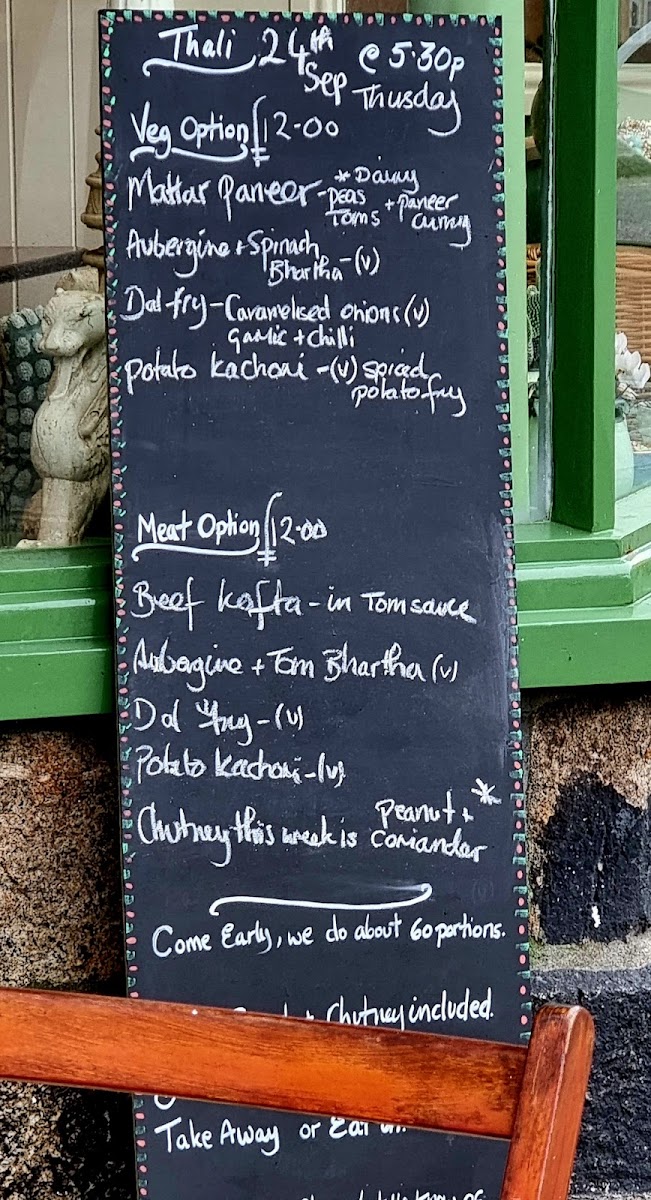 Thali 24th Sep @ 5.30p
Thusday
Veg Option £12-00
Mattar Paneer - *Dairy
peas + paneer
Toms curry
Aubergine + Spinach
Bhartha - (v)
Dal fry - Caramelised onions (v)
garlic + chilli
potato kachori - (v) spiced
potato fry
Meat Option £12-00
Beef kofta - in Tom sauce
Aubergine + Tom Bhartha (v)
Dal fry - (v)
Potato kachori - (v)
peanut + *
Chutney this week is Coriander
Come Early, we do about 60 portions.
Chutney included.
Take Away or Eat in.